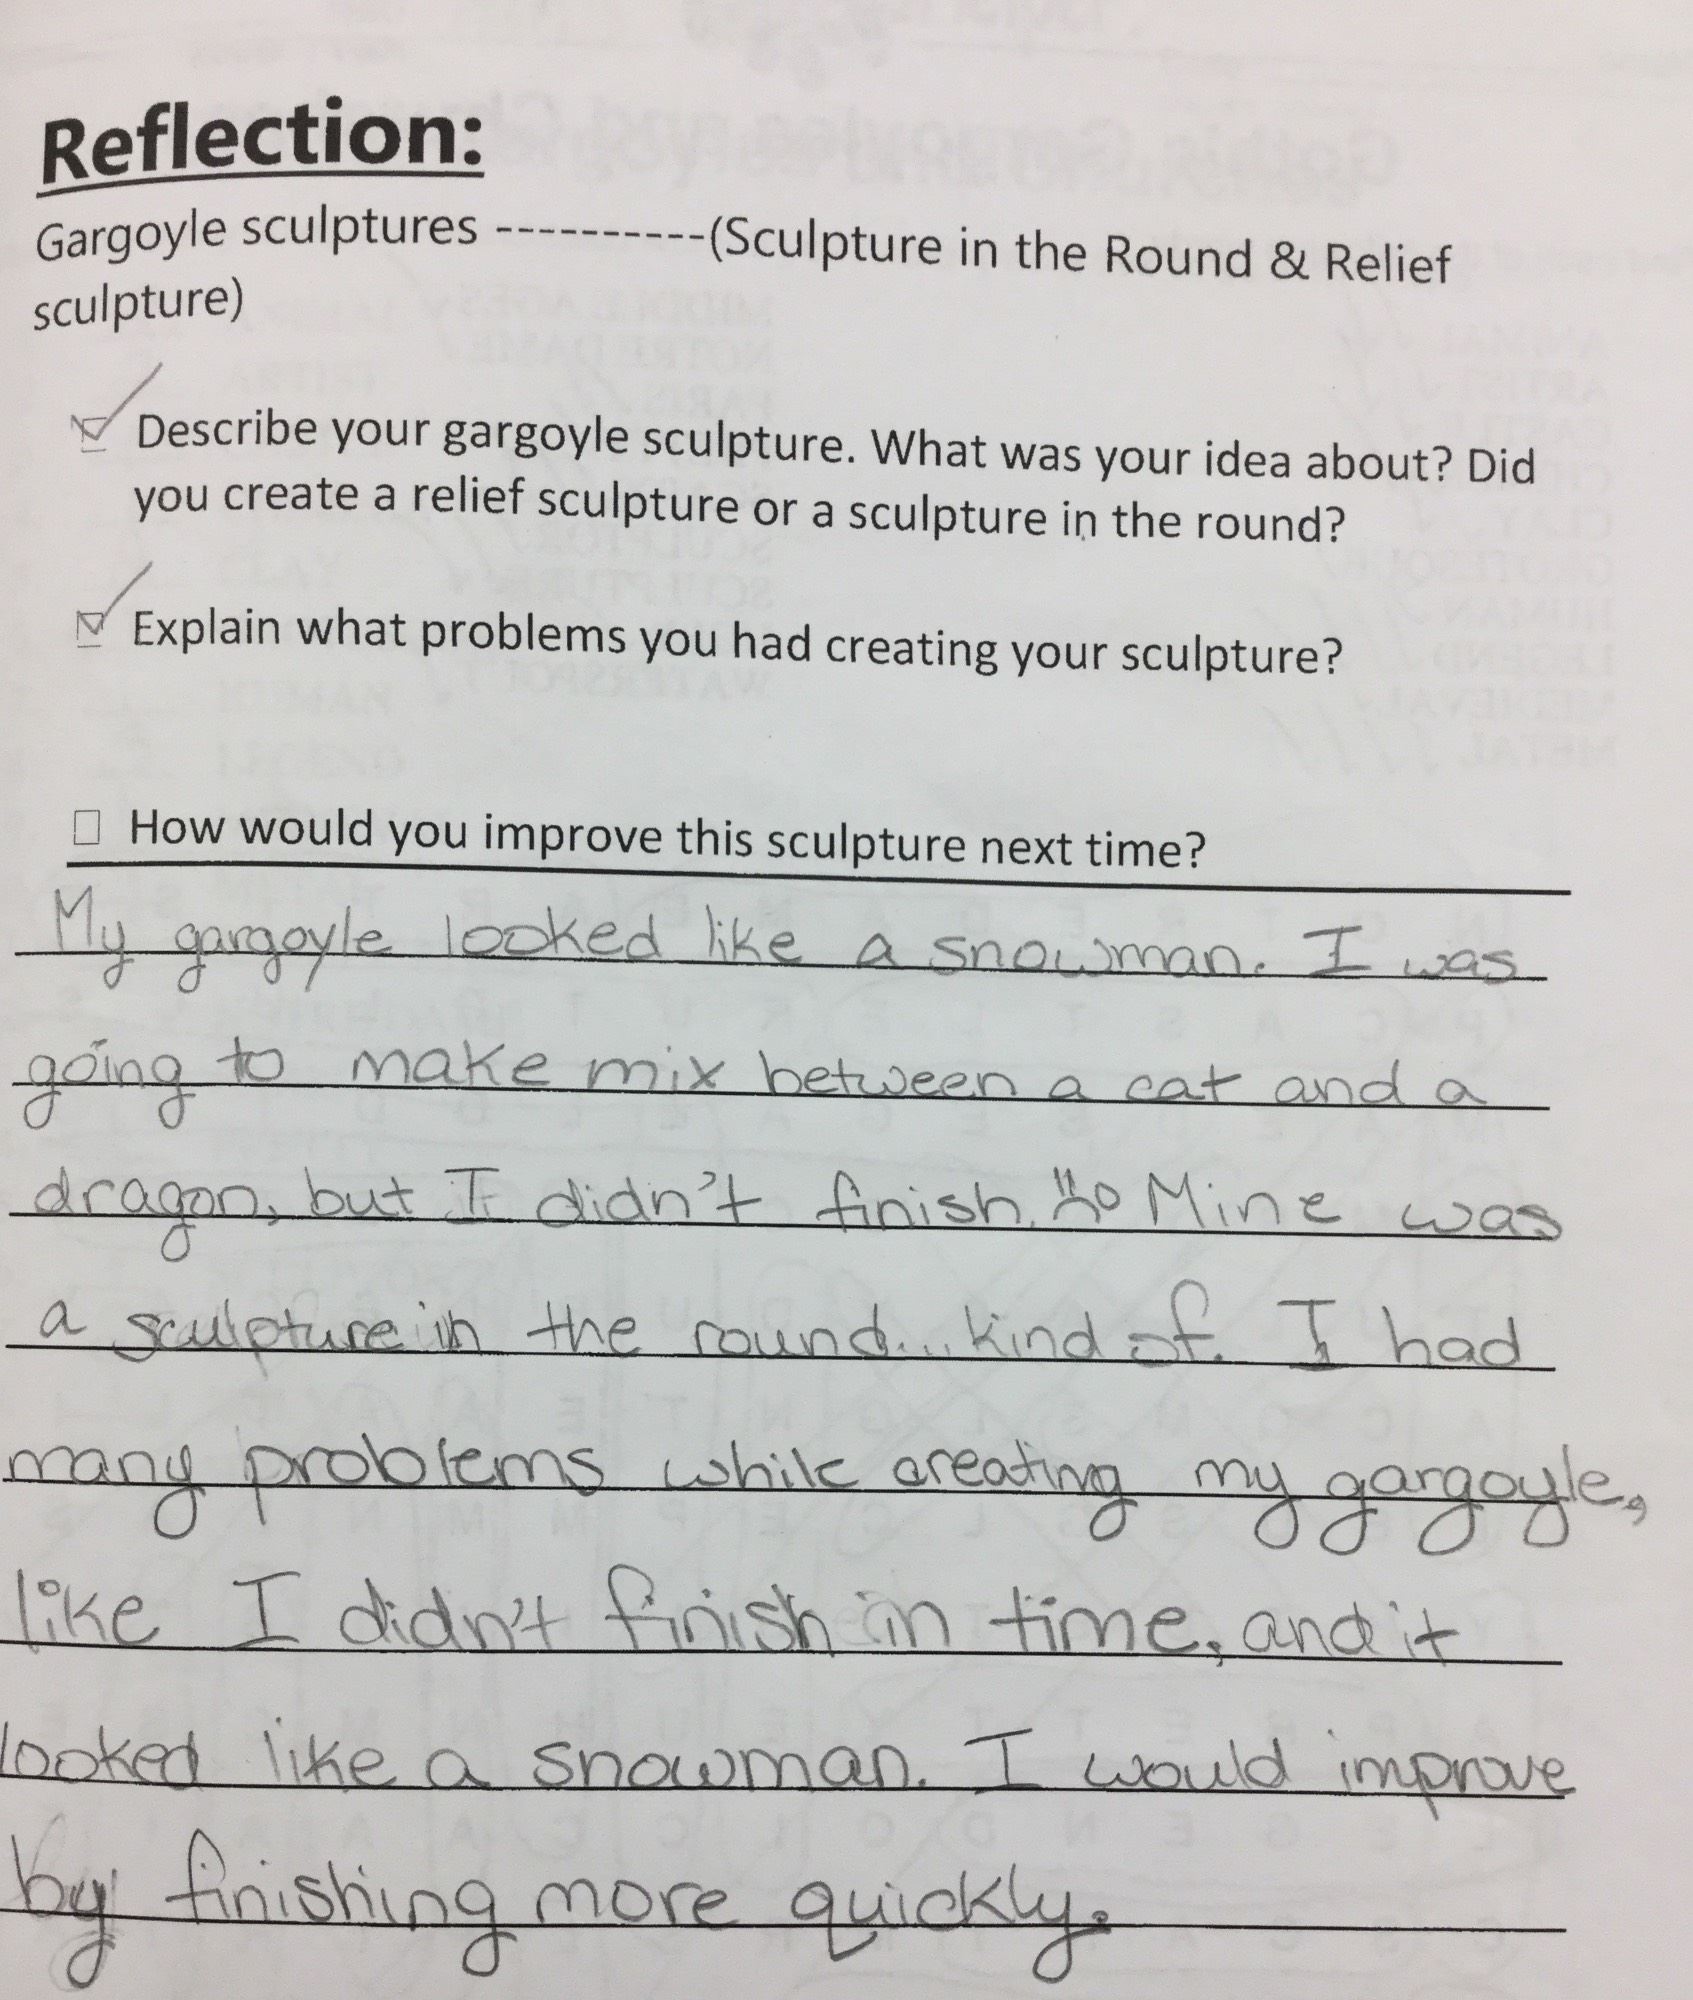 Reflection:
Gargoyle sculptures ----------(Sculpture in the Round & Relief
sculpture)
Describe your gargoyle sculpture. What was your idea about? Did
you create a relief sculpture or a sculpture in the round?
Explain what problems you had creating your sculpture?
How would you improve this sculpture next time?
My gargoyle looked like a snowman. I was
going to make mix between a cat and a
dragon, but I didn't finish. Mine was
a sculpture in the round... kind of. I had
many problems while creating my gargoyle,
like I didn't finish in time, and it
looked like a snowman. I would improve
by finishing more quickly.